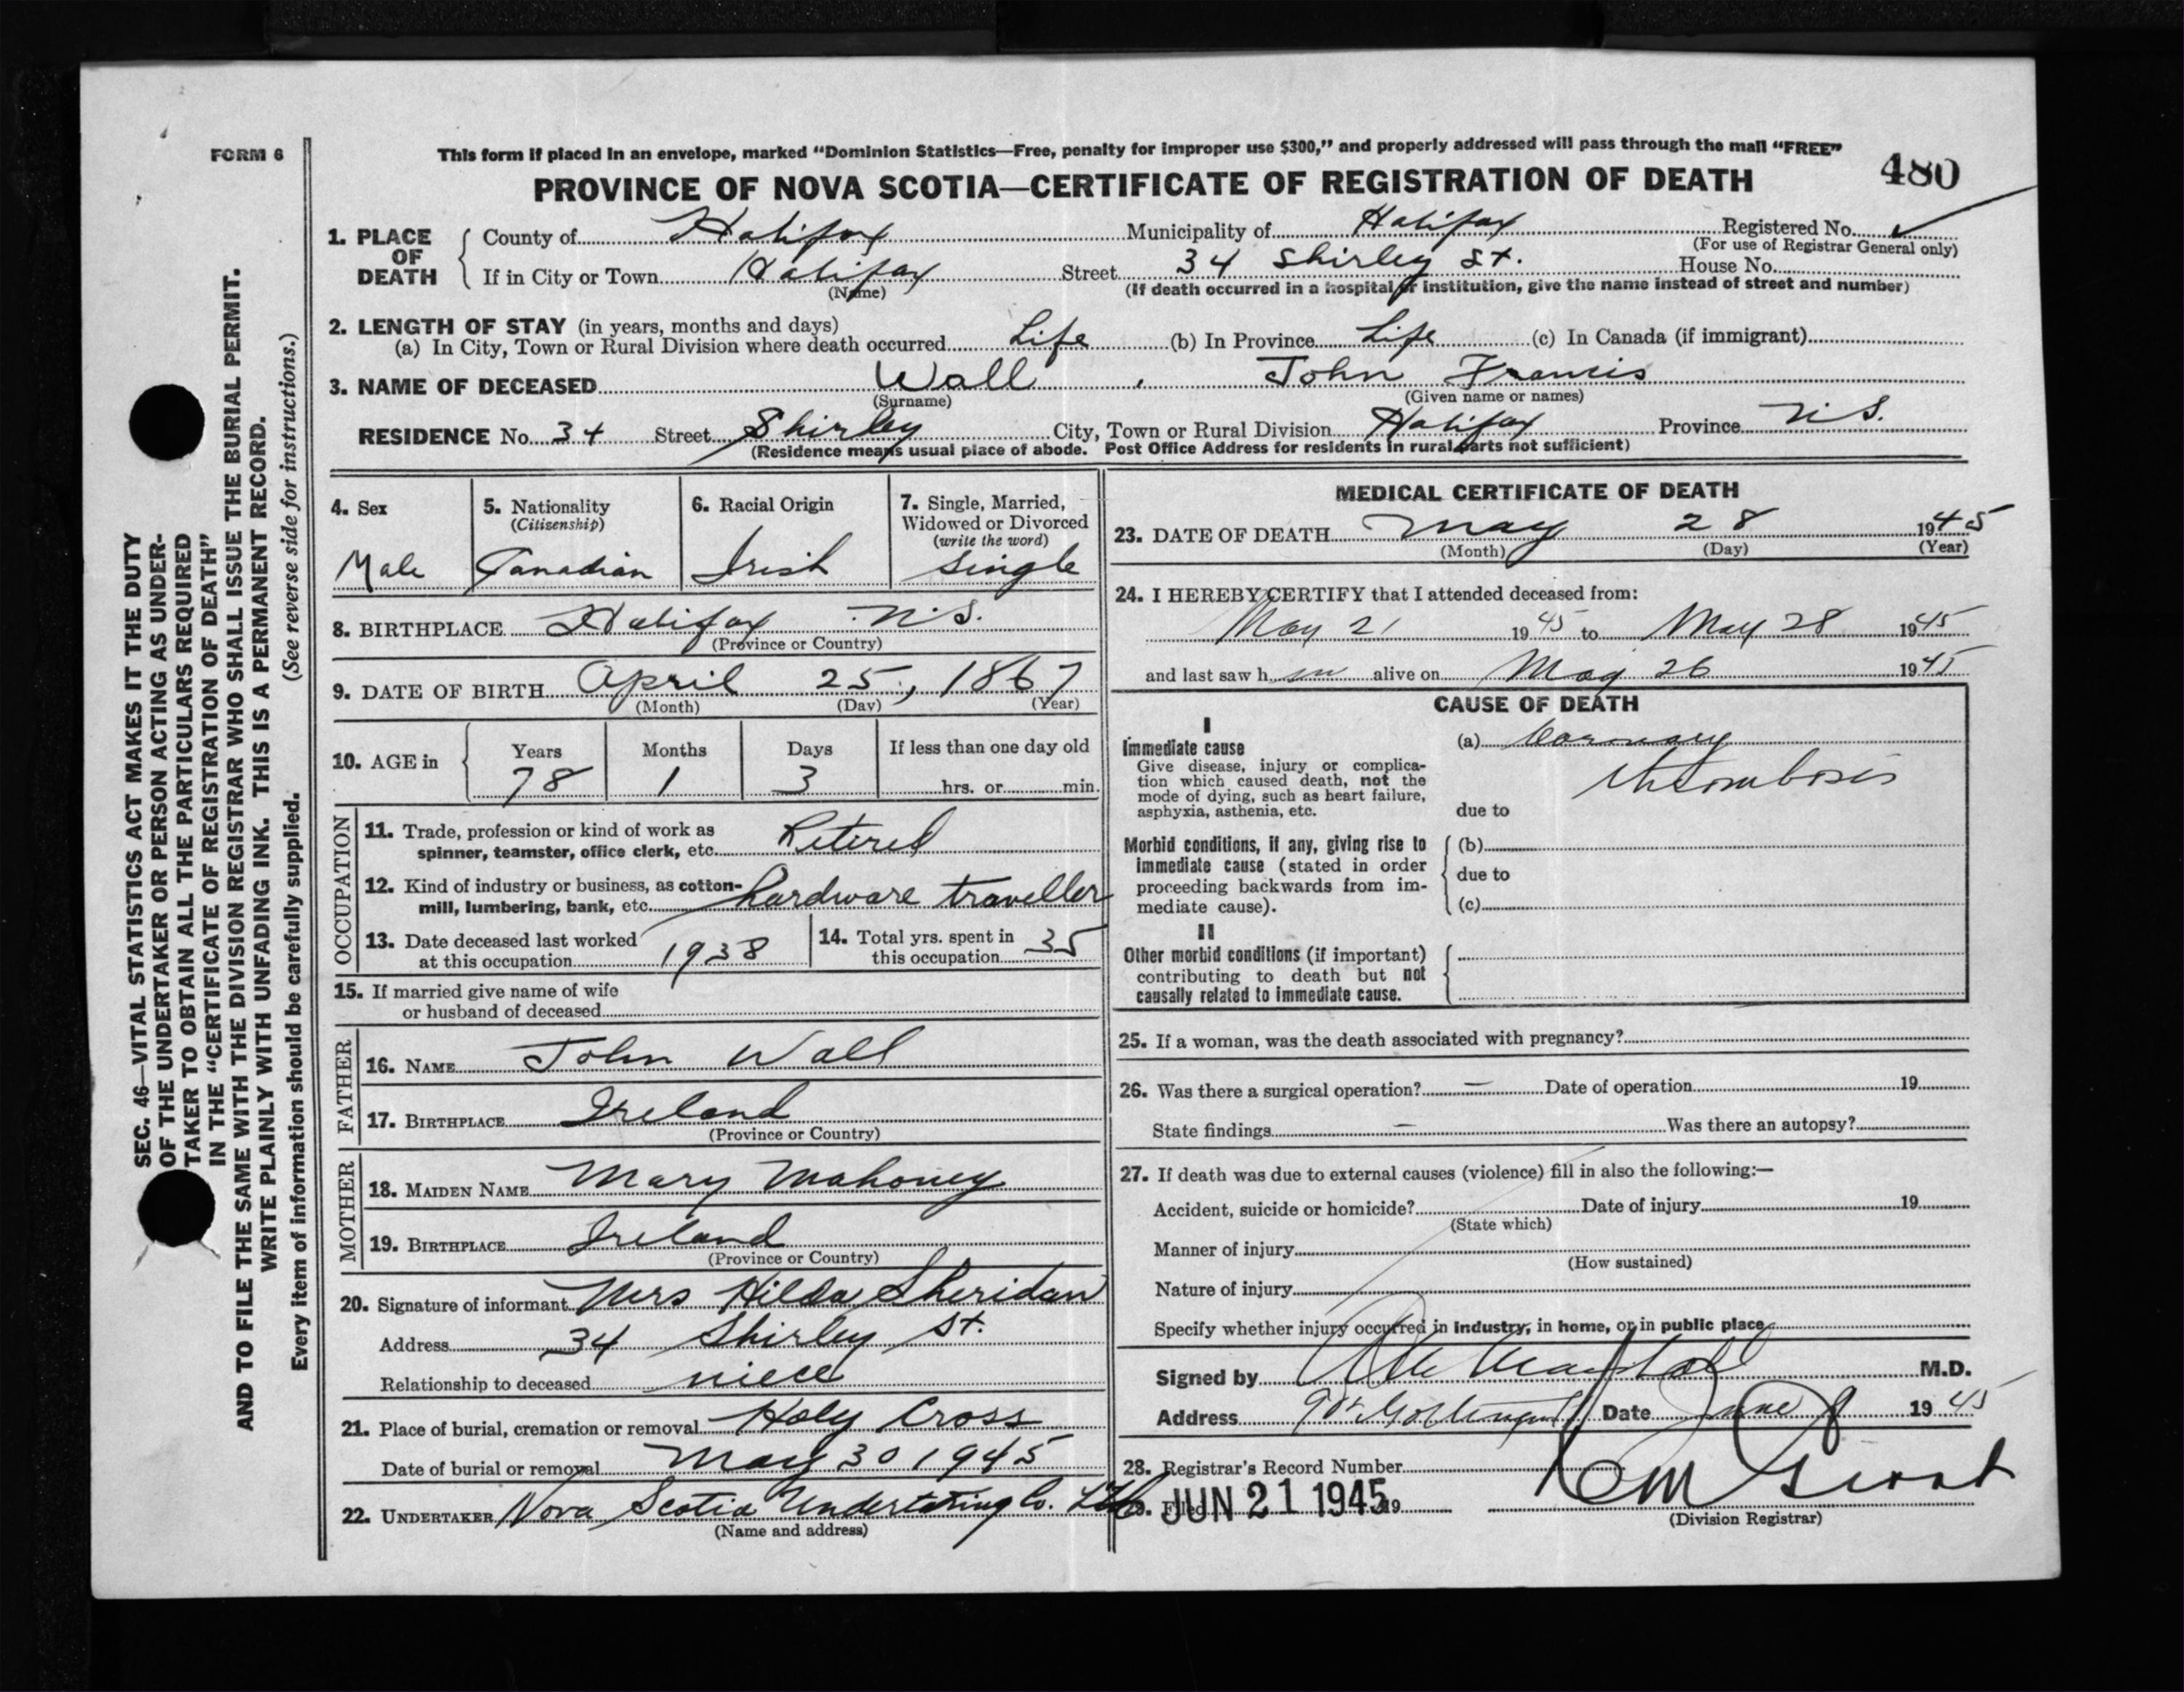 FORM 6
This form if placed in an envelope, marked “Dominion Statistics—Free, penalty for improper use $300,” and properly addressed will pass through the mail “FREE”
480
PROVINCE OF NOVA SCOTIA—CERTIFICATE OF REGISTRATION OF DEATH
1. PLACE OF DEATH
County of Halifax Municipality of Halifax Registered No.
(For use of Registrar General only)
If in City or Town Halifax Street 34 Shirley St. House No.
(Name) (If death occurred in a hospital or institution, give the name instead of street and number)
2. LENGTH OF STAY (in years, months and days)
(a) In City, Town or Rural Division where death occurred Life (b) In Province Life (c) In Canada (if immigrant)
3. NAME OF DECEASED Wall, John Francis
(Surname) (Given name or names)
RESIDENCE No. 34 Street Shirley City, Town or Rural Division Halifax Province N.S.
(Residence means usual place of abode. Post Office Address for residents in rural parts not sufficient)
4. Sex
Male
5. Nationality
(Citizenship)
Canadian
6. Racial Origin
Irish
7. Single, Married,
Widowed or Divorced
(write the word)
Single
8. BIRTHPLACE Halifax N.S.
(Province or Country)
9. DATE OF BIRTH April 25, 1867
(Month) (Day) (Year)
10. AGE in
Years Months Days If less than one day old
78 1 3 hrs. or min.
OCCUPATION
11. Trade, profession or kind of work as
spinner, teamster, office clerk, etc. Retired
12. Kind of industry or business, as cotton-
mill, lumbering, bank, etc. hardware traveller
13. Date deceased last worked
at this occupation 1938
14. Total yrs. spent in
this occupation 35
15. If married give name of wife
or husband of deceased
FATHER
16. NAME John Wall
17. BIRTHPLACE Ireland
(Province or Country)
MOTHER
18. MAIDEN NAME Mary Mahoney
19. BIRTHPLACE Ireland
(Province or Country)
20. Signature of informant Mrs Hilda Sheridan
Address 34 Shirley St.
Relationship to deceased niece
21. Place of burial, cremation or removal Holy Cross
Date of burial or removal May 30 1945
22. UNDERTAKER Nova Scotia Undertaking Co. Ltd
(Name and address)
MEDICAL CERTIFICATE OF DEATH
23. DATE OF DEATH May 28 1945
(Month) (Day) (Year)
24. I HEREBY CERTIFY that I attended deceased from:
May 21 1945 to May 28 1945
and last saw h im alive on May 26 1945
CAUSE OF DEATH
I
Immediate cause
Give disease, injury or complica-
tion which caused death, not the
mode of dying, such as heart failure,
asphyxia, asthenia, etc.
(a) Coronary
thrombosis
due to
Morbid conditions, if any, giving rise to
immediate cause (stated in order
proceeding backwards from im-
mediate cause).
(b)
due to
(c)
II
Other morbid conditions (if important)
contributing to death but not
causally related to immediate cause.
25. If a woman, was the death associated with pregnancy?
26. Was there a surgical operation? — Date of operation 19
State findings — Was there an autopsy?
27. If death was due to external causes (violence) fill in also the following:—
Accident, suicide or homicide? Date of injury 19
(State which)
Manner of injury
(How sustained)
Nature of injury
Specify whether injury occurred in industry, in home, or in public place
Signed by M.D.
Address Date June 8 1945
28. Registrar's Record Number
29. Filed JUN 21 1945 19
(Division Registrar)
SEC. 46—VITAL STATISTICS ACT MAKES IT THE DUTY
OF THE UNDERTAKER OR PERSON ACTING AS UNDER-
TAKER TO OBTAIN ALL THE PARTICULARS REQUIRED
IN THE “CERTIFICATE OF REGISTRATION OF DEATH”
AND TO FILE THE SAME WITH THE DIVISION REGISTRAR WHO SHALL ISSUE THE BURIAL PERMIT.
WRITE PLAINLY WITH UNFADING INK. THIS IS A PERMANENT RECORD.
Every item of information should be carefully supplied. (See reverse side for instructions.)